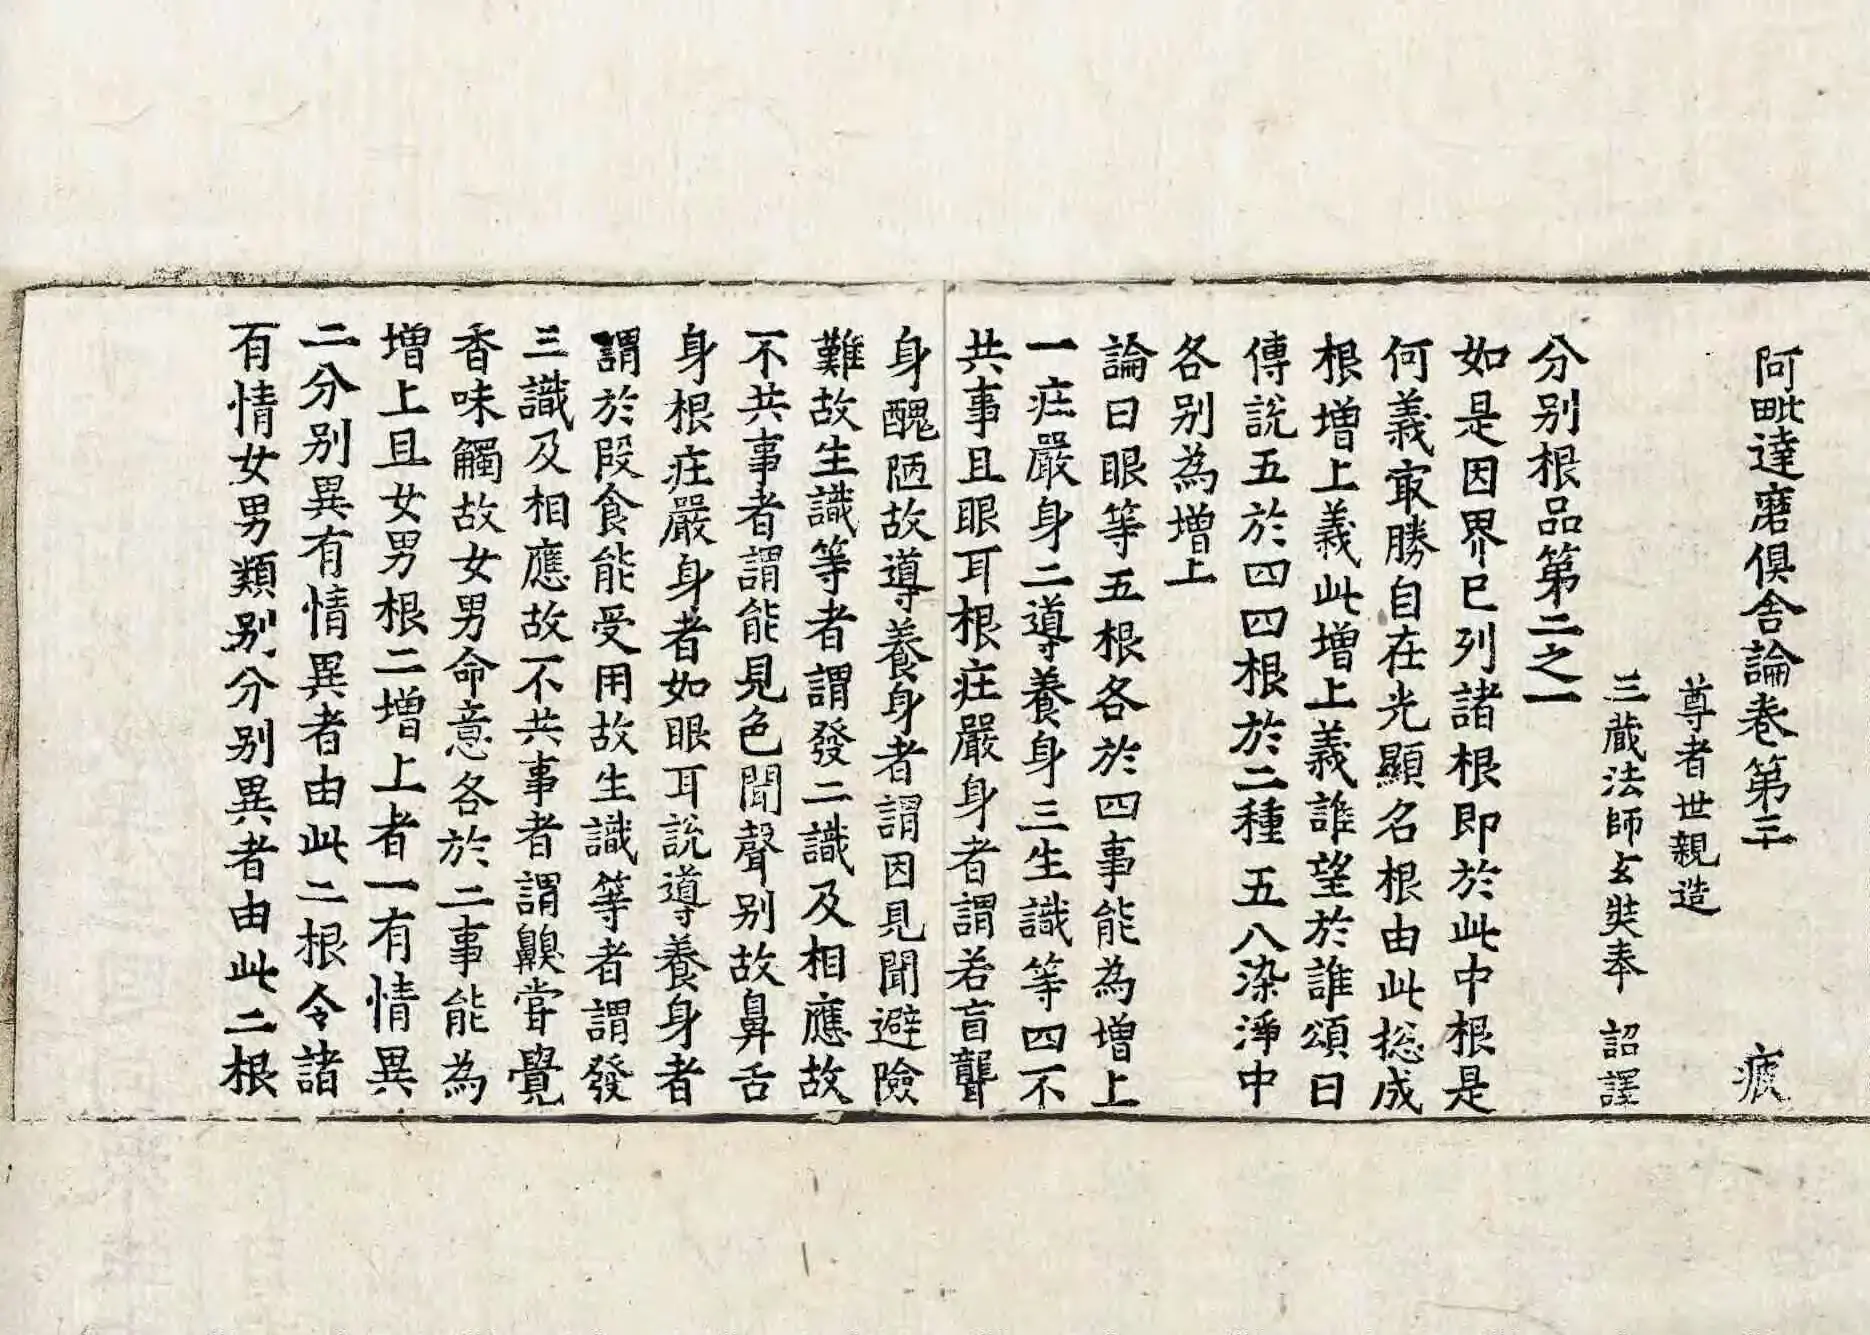 阿毗達磨俱舍論卷第三 疲
尊者世親造
三藏法師玄奘奉 詔譯
分别根品第二之一
如是因界已列諸根即於此中根是
何義㝡勝自在光顯名根由此捴成
根增上義此增上義誰望於誰頌曰
傳說五於四四根於二種五八染淨中
各别為增上
論曰眼等五根各於四事能為增上
一㽵嚴身二導養身三生識等四不
共事且眼耳根㽵嚴身者謂若盲聾
身醜陋故導養身者謂因見聞避險
難故生識等者謂發二識及相應故
不共事者謂能見色聞聲别故鼻舌
身根㽵嚴身者如眼耳說導養身者
謂於段食能受用故生識等者謂發
三識及相應故不共事者謂齅甞覺
香味觸故女男命意各於二事能為
增上且女男根二增上者一有情異
二分别異有情異者由此二根令諸
有情女男類别分别異者由此二根